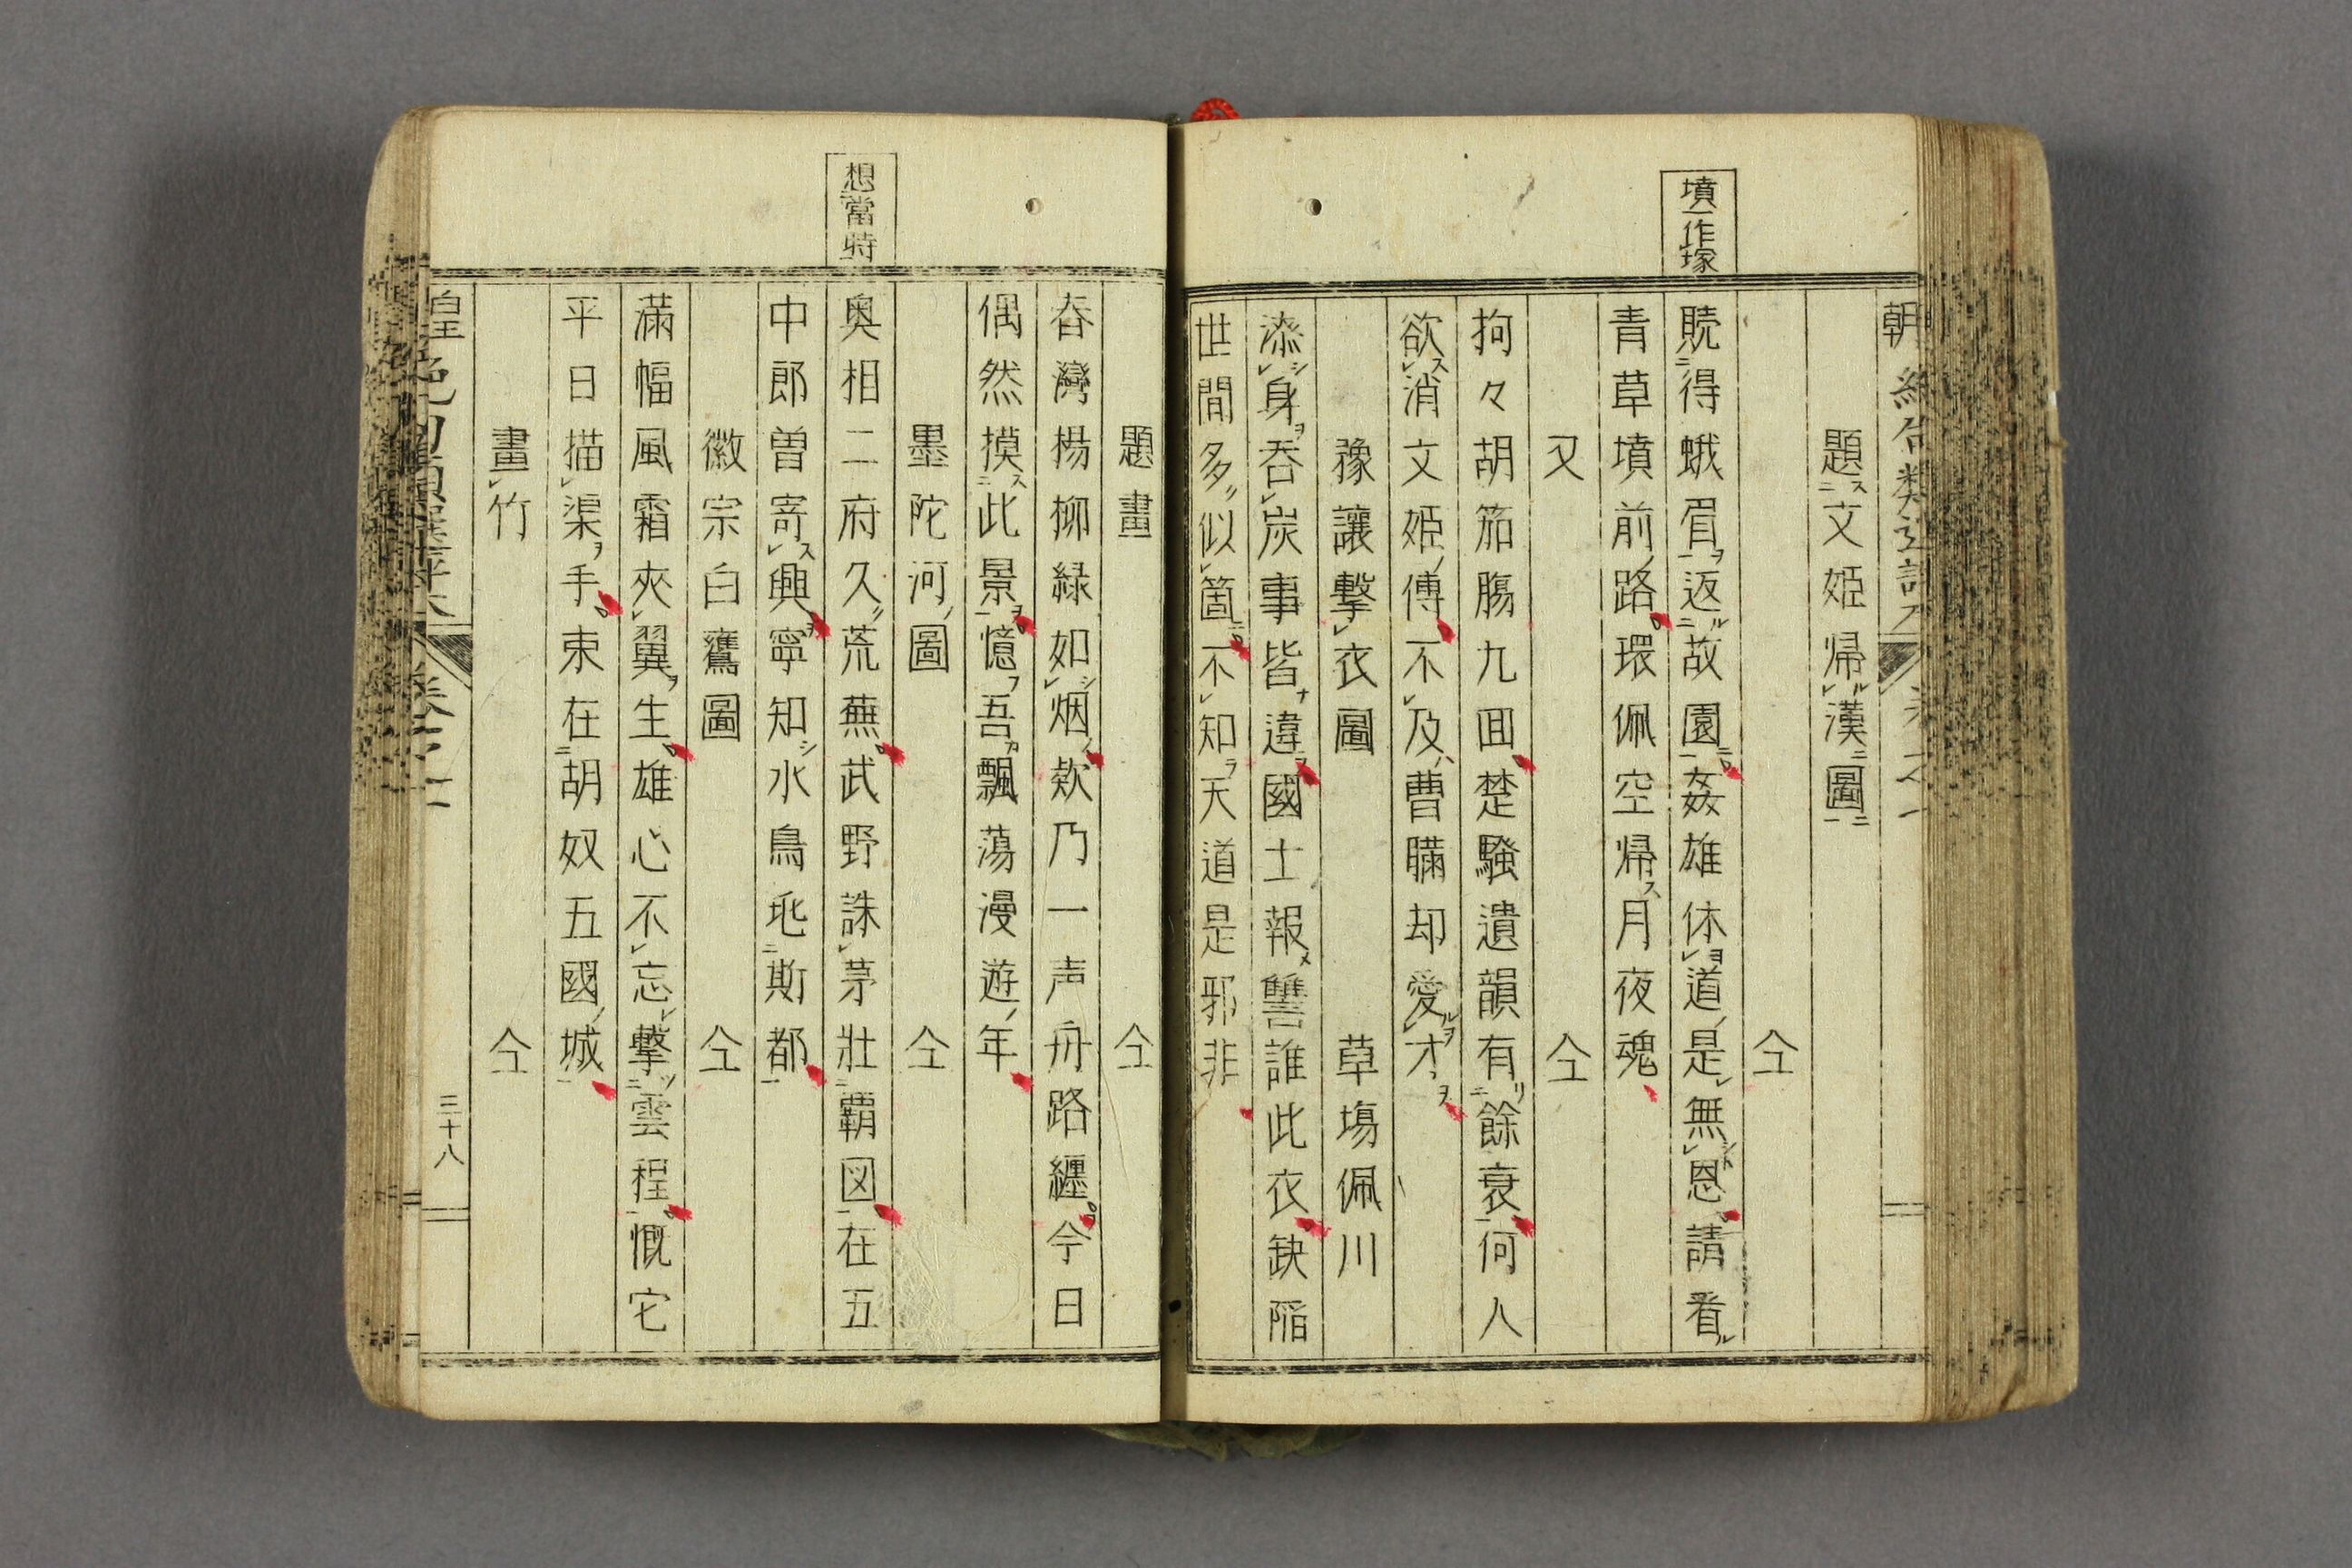 墳一作塚
題文姫帰漢圖
仝
贖得蛾眉返故園姦雄休道是無恩請看
青草墳前路環佩空帰月夜魂
又 仝
拘々胡笳膓九囬楚騷遺韻有餘哀何人
欲消文姫傅不及曹瞞却愛才
豫讓擊衣圖 草塲佩川
漆身吞炭事皆違國士報讐誰此衣缺陷
世間多似箇不知天道是邪非
題畫 仝
春灣楊柳緑如烟欸乃一声舟路纒今日
偶然摸此景憶吾飄蕩漫遊年
墨陀河圖 仝
想當時
奥相二府久荒蕪武野誅茅壯覇図在五
中郎曽寄興寧知水鳥兆斯都
徽宗白鷹圖 仝
滿幅風霜夾翼生雄心不忘擊雲程慨它
平日描渠手束在胡奴五國城
畫竹 仝
三十八